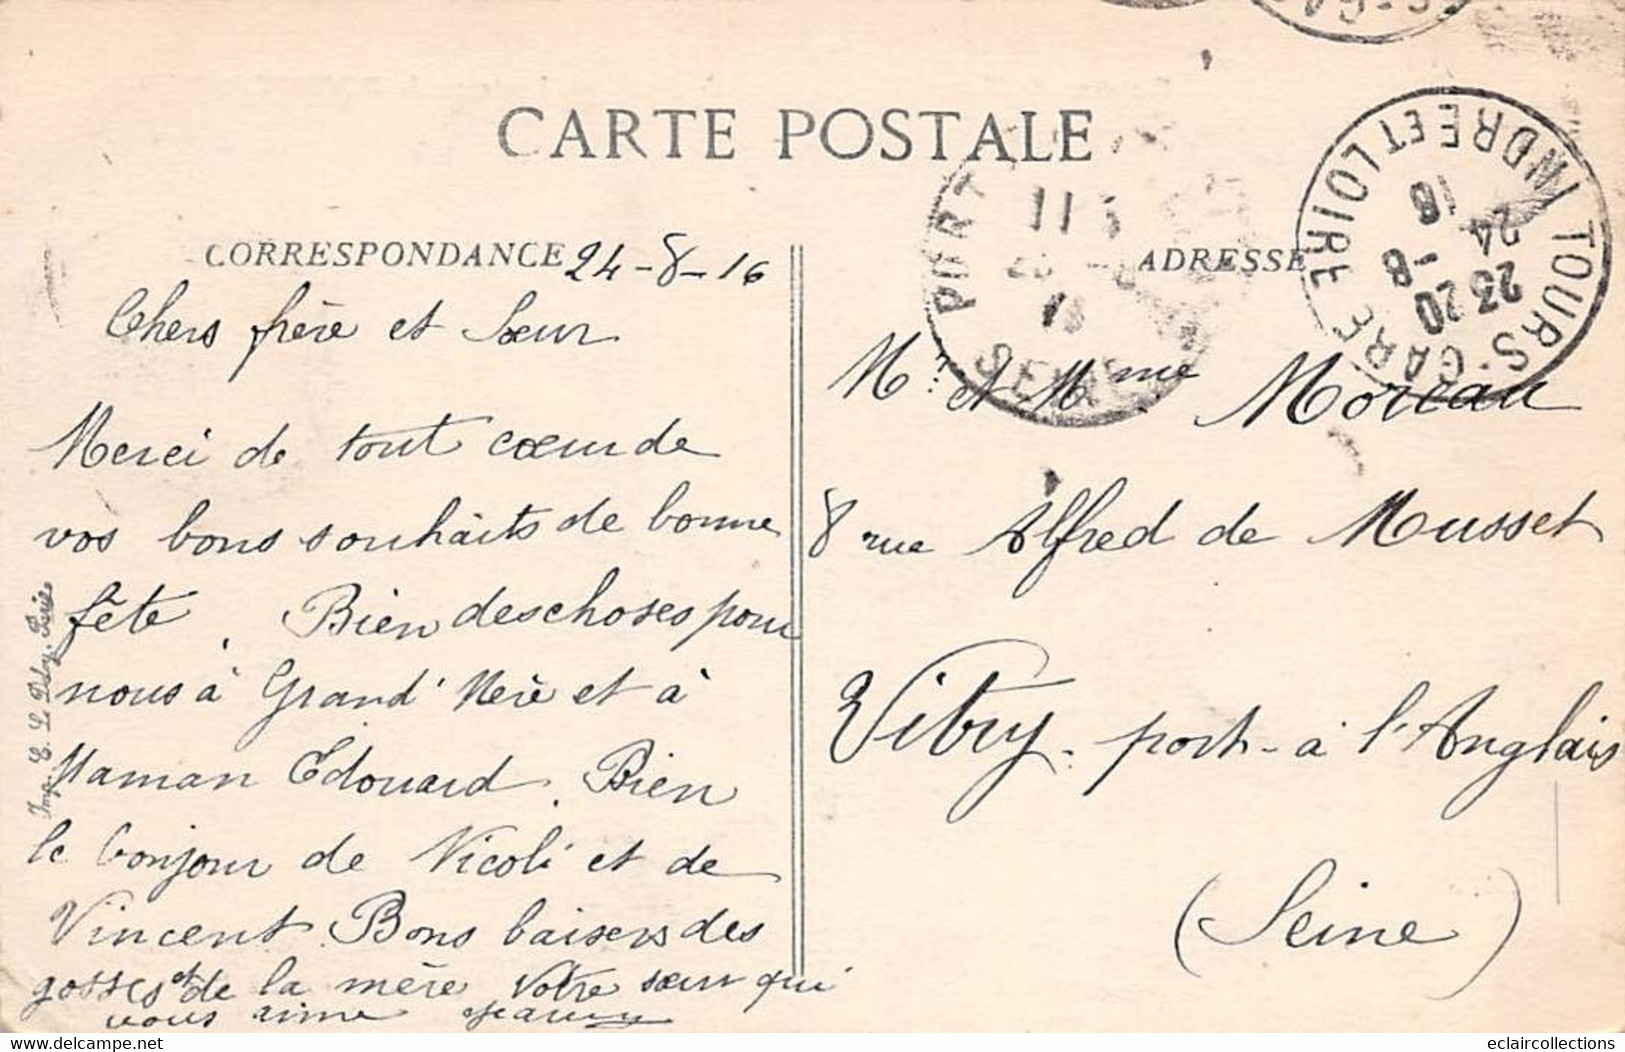 CARTE POSTALE
CORRESPONDANCE
24-8-16
Chers frère et Sœur
Merci de tout cœur de
vos bons souhaits de bonne
fête. Bien des choses pour
nous à Grand' Mère et à
Maman Edouard. Bien
le bonjour de Nicoli et de
Vincent. Bons baisers des
gosses et de la mère Votre sœur qui
vous aime
Imp. E. Le Deley, Paris
ADRESSE
Mr. et Mme Moreau
8 rue Alfred de Musset
Vitry-port-à l'Anglais
(Seine)
TOURS-GARE
INDRE ET LOIRE
23 20
24 - 8
16
PORT
11
SEINE
eclaircollections